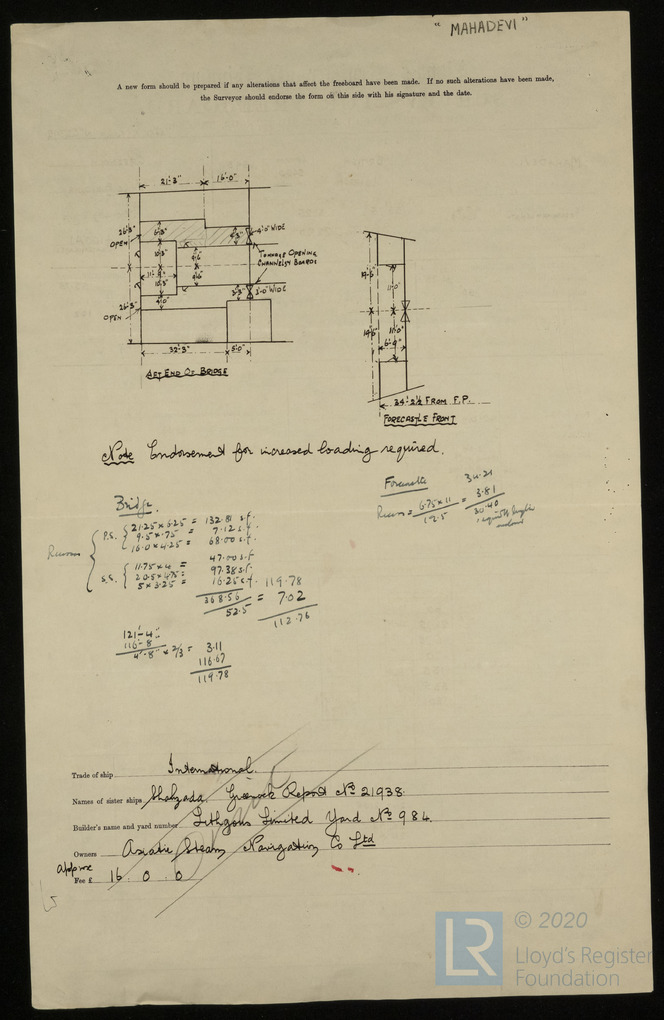 "MAHADEVI"
A new form should be prepared if any alterations that affect the freeboard have been made. If no such alterations have been made,
the Surveyor should endorse the form on this side with his signature and the date.
21'-3" 16'-0"
26'-3"
OPEN
6'-3"
4'-3"
4'-0" WIDE
TONNAGE OPENING
CHANNELS & BOARDS
10'-3"
4'-6"
11'-9"
4'-6"
10'-3"
26'-3"
OPEN
4'-0"
3'-3"
3'-0" WIDE
32'-3" 5'-0"
AFT END OF BRIDGE
19'-6"
11'-0"
14'-6"
11'-0"
6'-9"
34'-2½ FROM F.P.
FORECASTLE FRONT
Note Endorsement for increased loading required.
Bridge.
Recesses
P.S.
21.25 x 6.25 = 132.81 s.f.
9.5 x .75 = 7.12 s.f.
16.0 x 4.25 = 68.00 s.f.
S.S.
11.75 x 4 = 47.00 s.f.
20.5 x 4.75 = 97.38 s.f.
5 x 3.25 = 16.25 s.f.
368.56
52.5
= 119.78
7.02
112.76
121'-4"
116'-8
4'-8" x 2/3 = 3.11
116.67
119.78
Forecastle
Recess = 6.75 x 11
19.5
= 34.21
3.81
30.40
length
Trade of ship International.
Names of sister ships Shahzada. Greenock Report No 21938.
Builder's name and yard number Lithgows Limited Yard No 984.
Owners Asiatic Steam Navigation Co Ltd
approx
Fee £ 16 . 0 . 0
LR
© 2020
Lloyd's Register
Foundation